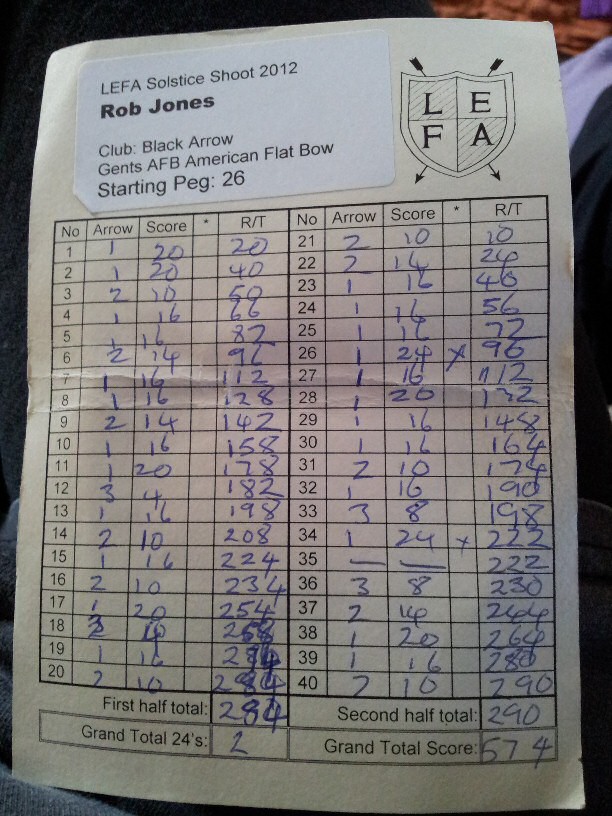 LEFA Solstice Shoot 2012
Rob Jones
Club: Black Arrow
Gents AFB American Flat Bow
Starting Peg: 26
L E
F A
No Arrow Score * R/T No Arrow Score * R/T
1 1 20 20 21 2 10 10
2 1 20 40 22 2 14 24
3 2 10 50 23 1 16 40
4 1 16 66 24 1 16 56
5 1 16 82 25 1 16 72
6 2 14 96 26 1 24 x 96
7 1 16 112 27 1 16 112
8 1 16 128 28 1 20 132
9 2 14 142 29 1 16 148
10 1 16 158 30 1 16 164
11 1 20 178 31 2 10 174
12 3 4 182 32 1 16 190
13 1 16 198 33 3 8 198
14 2 10 208 34 1 24 x 222
15 1 16 224 35 — — 222
16 2 10 234 36 3 8 230
17 1 20 254 37 2 14 244
18 258 38 1 20 264
19 1 16 39 1 16 280
20 2 10 284 40 2 10 290
First half total: 284 Second half total: 290
Grand Total 24's: 2 Grand Total Score: 574